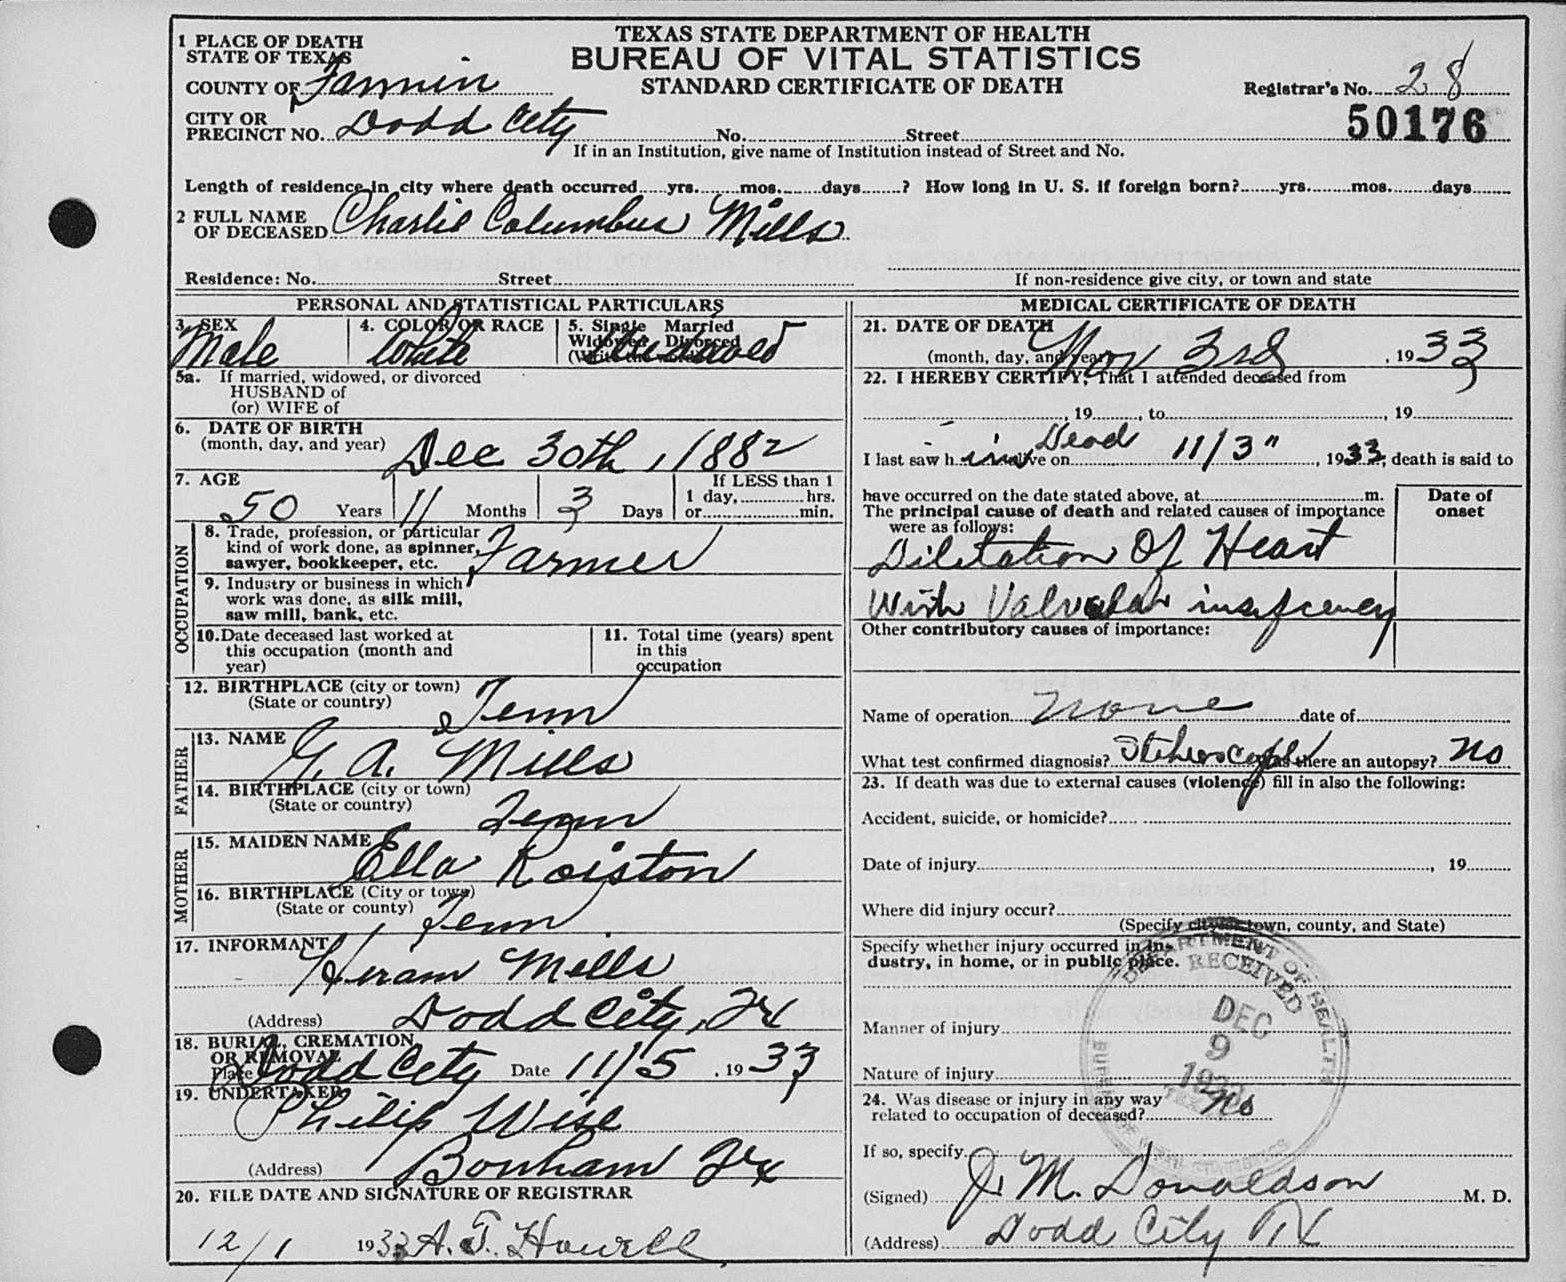 TEXAS STATE DEPARTMENT OF HEALTH
BUREAU OF VITAL STATISTICS
STANDARD CERTIFICATE OF DEATH
1 PLACE OF DEATH
STATE OF TEXAS
COUNTY OF Fannin
Registrar's No. 28
50176
CITY OR
PRECINCT NO. Dodd City No. Street
If in an Institution, give name of Institution instead of Street and No.
Length of residence in city where death occurred yrs. mos. days ? How long in U. S. if foreign born? yrs. mos. days
2 FULL NAME
OF DECEASED Charlie Columbus Mills
Residence: No. Street
If non-residence give city, or town and state
PERSONAL AND STATISTICAL PARTICULARS
3. SEX
Male
4. COLOR OR RACE
White
5. Single Married
Widowed Divorced
(Write the word)
Widowed
5a. If married, widowed, or divorced
HUSBAND of
(or) WIFE of
6. DATE OF BIRTH
(month, day, and year) Dec 30th, 1882
7. AGE
50 Years 11 Months 3 Days
If LESS than 1
1 day, hrs.
or min.
OCCUPATION
8. Trade, profession, or particular
kind of work done, as spinner,
sawyer, bookkeeper, etc. Farmer
9. Industry or business in which
work was done, as silk mill,
saw mill, bank, etc.
10. Date deceased last worked at
this occupation (month and
year)
11. Total time (years) spent
in this
occupation
12. BIRTHPLACE (city or town)
(State or country) Tenn
FATHER
13. NAME G. A. Mills
14. BIRTHPLACE (city or town)
(State or country) Tenn
MOTHER
15. MAIDEN NAME Ella Roiston
16. BIRTHPLACE (City or town)
(State or county) Tenn.
17. INFORMANT Hiram Mills
(Address) Dodd City, Tex
18. BURIAL, CREMATION
OR REMOVAL
Place Dodd City Date 11/5, 1933
19. UNDERTAKER
Philip Wise
(Address) Bonham Tex
20. FILE DATE AND SIGNATURE OF REGISTRAR
12/1 1933 A. T. Howell
MEDICAL CERTIFICATE OF DEATH
21. DATE OF DEATH
(month, day, and year) Nov 3rd, 1933
22. I HEREBY CERTIFY, That I attended deceased from
, 19 , to , 19
I last saw h im alive on Dead 11/3", 1933, death is said to
have occurred on the date stated above, at m.
The principal cause of death and related causes of importance
were as follows:
Date of
onset
Dilitation Of Heart
With Valvular insufcency
Other contributory causes of importance:
Name of operation None date of
What test confirmed diagnosis? Stehoscope Was there an autopsy? No
23. If death was due to external causes (violence) fill in also the following:
Accident, suicide, or homicide?
Date of injury , 19
Where did injury occur?
(Specify city or town, county, and State)
Specify whether injury occurred in in-
dustry, in home, or in public place.
Manner of injury
Nature of injury
24. Was disease or injury in any way
related to occupation of deceased? No
If so, specify
(Signed) J. M. Donaldson M. D.
(Address) Dodd City TX
DEPARTMENT OF HEALTH
RECEIVED
DEC
9
1933
BUREAU OF VITAL STATISTICS